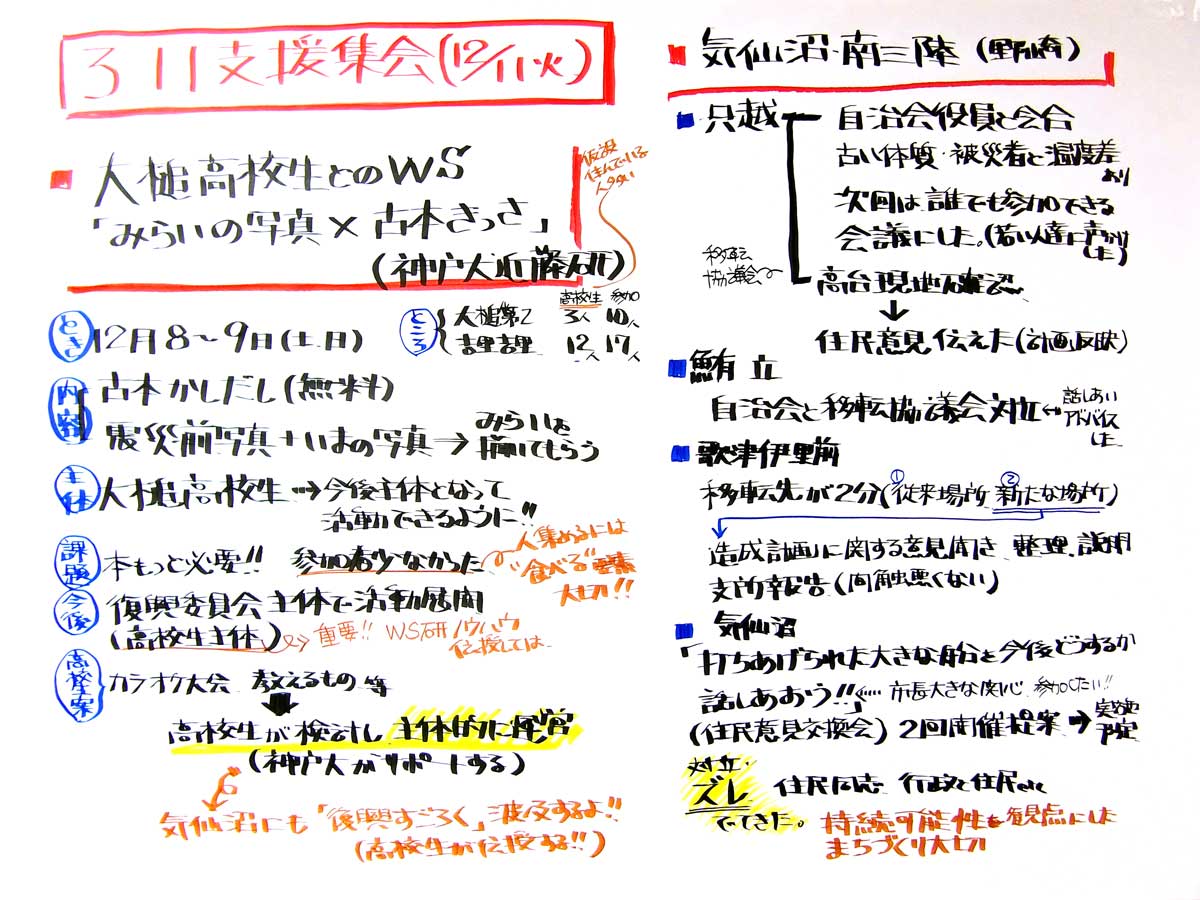 3.11支援集会(12/11火)
大槌高校生とのWS
「みらいの写真×古本さっさ」
(神戸大近藤研)
仮設
住んでいる
人多い
とき
12月8〜9日(土.日)
ところ
高校生 参加
大槌第2 3人 10人
吉里吉里 12人 17人
内容
古本かしだし(無料)
震災前写真+いまの写真→みらいを
描いてもらう
主体
大槌高校生⇢今後主体となって
活動できるように!!
課題
本もっと必要!! 参加者少なかった
人集めるには
"食べる"要素
大切!!
今後
復興委員会主体で活動展開
(高校生主体)
重要!! WS研ノウハウ
伝授しては
高校生案
カラオケ大会 教えるもの 等
高校生が検討し主体的に運営
(神戸大がサポートする)
気仙沼にも「復興すごろく」波及するよ!!
(高校生が伝授する!!)
気仙沼・南三陸(野崎)
只越
自治会役員と会合
古い体質・被災者と温度差
あり
次回は誰でも参加できる
会議にした。(若い人達に声かけ
した)
移転
協議会
高台現地確認
↓
住民意見伝えた(計画反映)
鮪立
自治会と移転協議会対立←話しあい
アドバイス
した
歌津伊里前
移転先が2分(①従来場所 ②新たな場所)
造成計画に関する意見聞き 整理、説明
支所報告(間触悪くない)
気仙沼
「打ちあげられた大きな船を今後どうするか
話しあおう!!」⇠市長大きな関心 参加したい!!
(住民意見交換会) 2回開催提案→実施
予定
対立・
ズレ
住民同志 行政と住民etc
でてきた。
持続可能性を観点にした
まちづくり大切